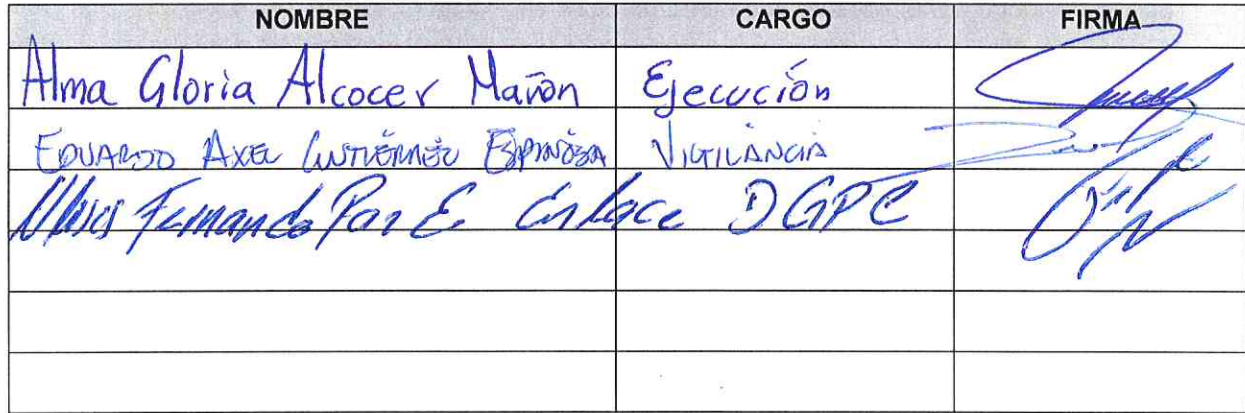 NOMBRE CARGO FIRMA
Alma Gloria Alcocer Mañón Ejecución
EDUARDO AXEL GUTIÉRREZ ESPINÓSA VIGILANCIA
Fernando Enlace DGPC